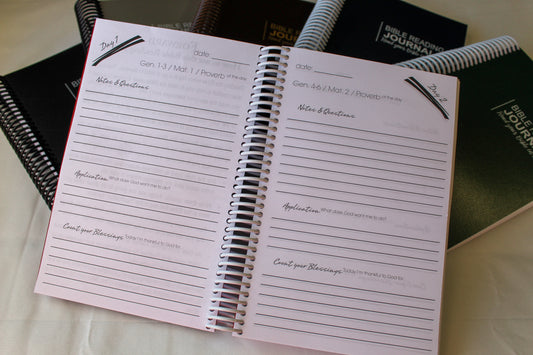 Day 1
date:
Gen. 1-3 / Mat. 1 / Proverb of the day
Notes & Questions
Application What does God want me to do?
Count your Blessings Today I'm thankful to God for:
Day 2
date:
Gen. 4-6 / Mat. 2 / Proverb of the day
Notes & Questions
Application What does God want me to do?
Count your Blessings Today I'm thankful to God for:
BIBLE READING
JOURNAL
BIBLE READING
JOURNA
BIBLE READING
JOURNAL